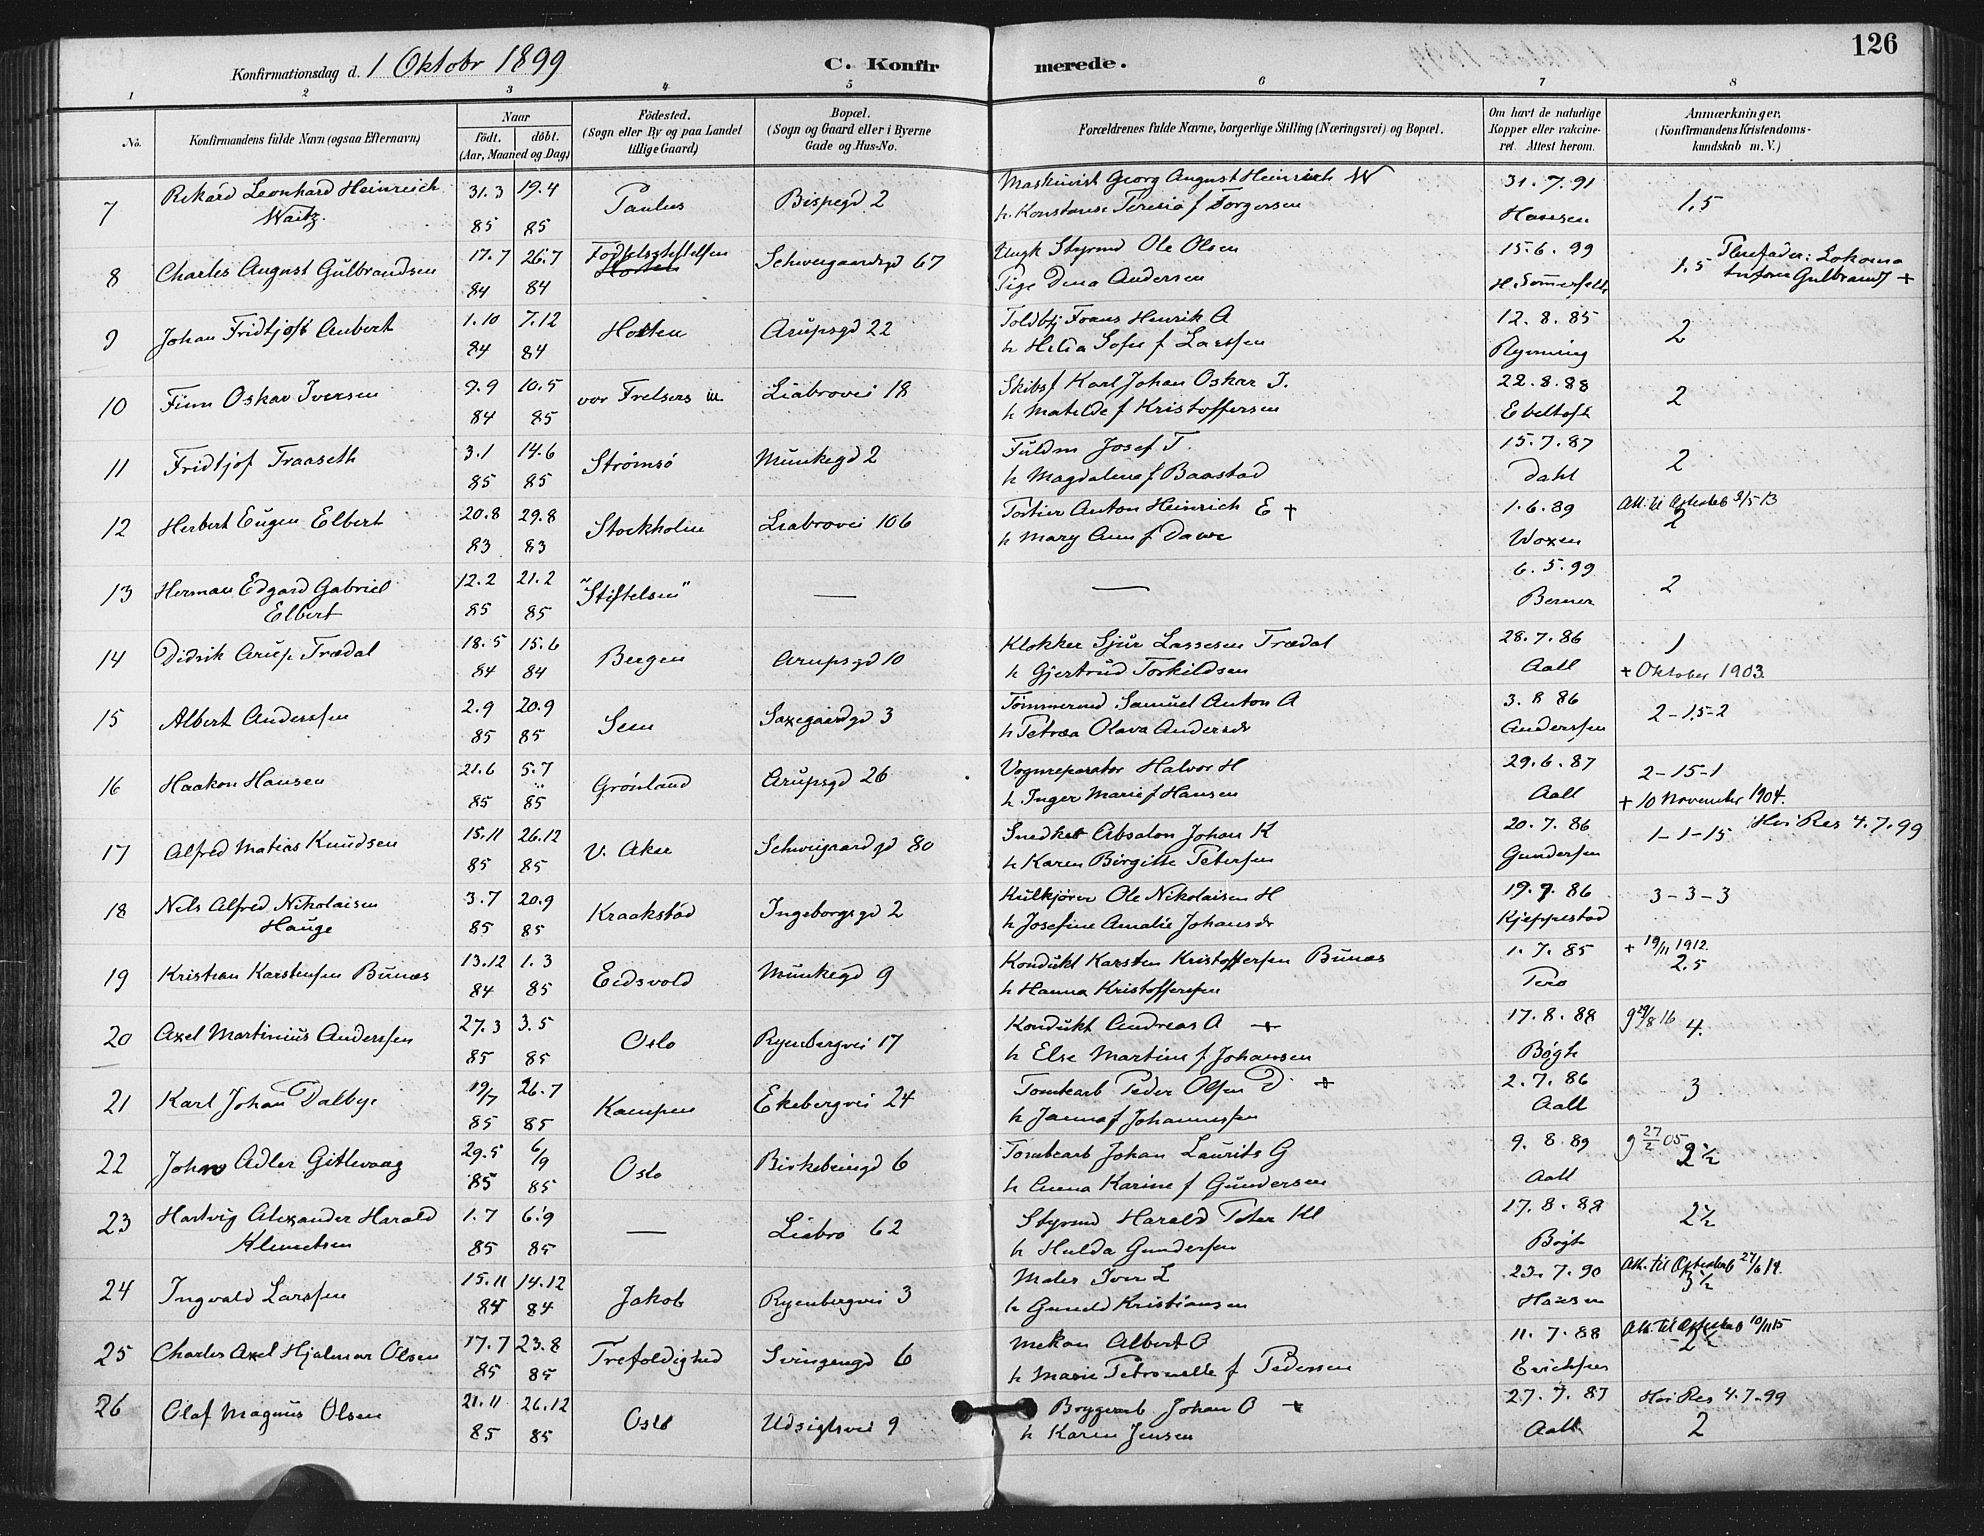 126
Konfirmationsdag d. 1 Oktobr 1899 C. Konfirmerede.
1 2 3 4 5 6 7 8
No. Konfirmandens fulde Navn (ogsaa Efternavn) Naar født. døbt. (Aar, Maaned og Dag) Fødested. (Sogn eller By og paa Landet tillige Gaard) Bopæl. (Sogn og Gaard eller i Byerne Gade og Hus-No. Forældrenes fulde Navne, borgerlige Stilling (Næringsvei) og Bopæl. Om havt de naturlige Kopper eller vakcineret. Attest herom. Anmærkninger. (Konfirmandens Kristendomskundskab m. V.)
7 Rikard Leonhard Heinrich 31.3 19.4 Paulus Bispegd 2 Maskinist Georg August Heinrich W 31.7.91 1,5
Waitz. 85 85 h. Konstanse Teresia f Torgersen Hansen
8 Charles August Gulbrandsen 17.7 26.7 Fødselsstiftelsen Schweigaardsgd 67 Ungk Styrmd Ole Olsen 15.6.99 1,5 Plejefader: Lokomo
84 84 Pige Dina Andersen H. Sommerfeldt Gulbrands +
9 Johan Fridtjof Aubert 1.10 7.12 Horten Arupsgd 22 Toldbtj Frans Henrik A 12.8.85 2
84 84 h Helia Sofie f Larssen Rynning
10 Finn Oskar Iversen 9.9 10.5 vor Frelsers m. Liabrovei 18 Skibsf Karl Johan Oskar I. 22.8.88 2
84 85 h Matilde f Kristoffersen Ebeltoft
11 Fridtjof Traaseth 3.1 14.6 Strømsø Munkegd 2 Fuldm Josef T. 15.7.87 2
85 85 h Magdalena f Baastad Dahl
12 Herbert Eugen Elbert 20.8 29.8 Stockholm Liabrovei 106 Portier Anton Heinrich E + 1.6.89 Att. til 3/5 13 2
83 83 h Mary Ann f Dawe Woxen
13 Herman Edgard Gabriel 12.2 21.2 "Stiftelsen" — — 6.5.99 2
Elbert 85 85 Berner
14 Didrik Arup Trædal 18.5 15.6 Bergen Arupsgd 10 Klokker Sjur Lassesen Trædal 28.7.86 1
84 84 h Gjertrud Torkildsen Aall + Oktober 1903.
15 Albert Anderssen 2.9 20.9 Sem Saxegaardgd 3 Tømmermd Samuel Anton A 3.8 86 2-1,5-2
85 85 h Petrea Olava Andersdr Anderssen
16 Haakon Hansen 21.6 5.7 Grønland Arupsgd 26 Vognreparatør Halvor H 29.6.87 2-15-1
85 85 h Inger Marie f Hansen Aall + 10 November 1904.
17 Alfred Matias Knudsen 15.11 26.12 V. Aker Schweigaardgd 80 Snedker Absalon Johan K 20.7.86 1-1-15 Hvi Res 4.7.99
85 85 h Karen Birgitte Petersen Gundersen
18 Nils Alfred Nikolaisen 3.7 20.9 Kraakstad Ingeborgsgd 2 Kulkjører Ole Nikolaisen H 19.7.86 3-3-3
Hauge 85 85 h Josefine Amalie Johansdr Kjeppestad
19 Kristian Karstensen Bunæs 13.12 1.3 Eidsvold Munkegd 9 Kondukt Karsten Kristoffersen Bunæs 1.7.85 + 19/11 1912. 2.5
84 85 h Hanna Kristoffersen
20 Axel Martinius Anderssen 27.3 3.5 Oslo Ryenbergvei 17 Kondukt Andreas A + 17.8.88 4.
85 85 h Else Martine f Johansen Bøgh
21 Karl Johan Dalbye 19/7 26.7 Kampen Ekebergvei 24 Tomtearb Peder Olsen D + 2.7.86 3
85 85 h Janna f Johannessen Aall
22 John Adler Gittevaag 29.5 6/9 Oslo Birkebeingd 6 Tomtearb Johan Laurits G 9.8.89 g 27/2 05 2½
85 85 h Anna Karine f Gundersen Aall
23 Hartvig Alexander Harald 1.7 6.9 — Liabro 62 Styrmd Harald Peter Kl 17.8.88 2½
Klemetsen 85 85 h Hulda Gundersen Bøgh
24 Ingvald Larssen 15.11 14.12 Jakob Ryenbergvei 3 Maler Iver L 23.7.90 Att. til 27/6 19. 3½
84 84 h Gunild Kristiansen Hansen
25 Charles Axel Hjalmar Olsen 17.7 23.8 Trefoldighed Svingengd 6 Mekan Albert O 11.7.88 Att. til 10/11 15 2½
85 85 h Marie Petronelle f Pedersen Erichsen
26 Olaf Magnus Olsen 21.11 26.12 Oslo Udsigtsvei 9 Bryggearb Johan O + 27.7.87 Hvi Res 4.7.99
85 85 h Karen Jensen Aall 2